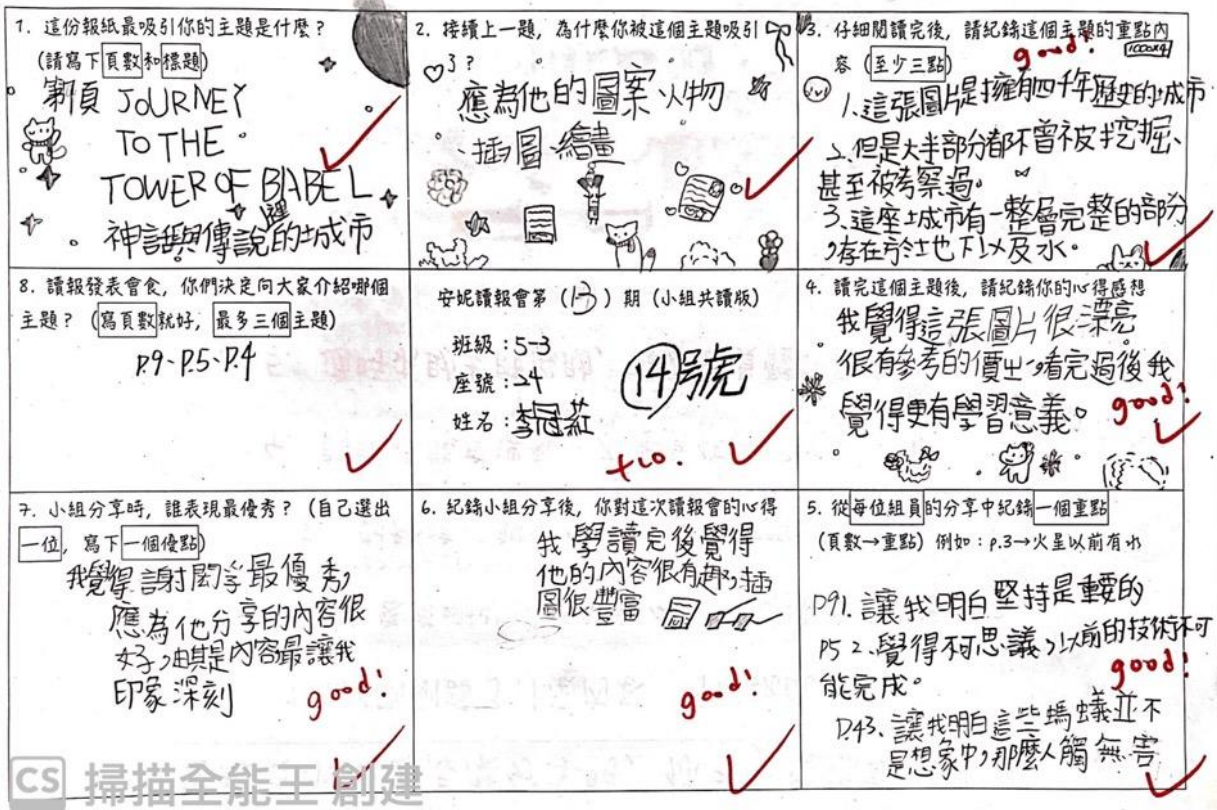 1. 這份報紙最吸引你的主題是什麼?
(請寫下頁數和標題)
第1頁 JOURNEY
TO THE
TOWER OF BABEL
神話與傳說裡的城市
2. 接續上一題, 為什麼你被這個主題吸引
3?
應為他的圖案、人物
、插圖、繪畫
3. 仔細閱讀完後, 請紀錄這個主題的重點內
容 (至少三點)
good!
1000x4
1.這張圖片是擁有四千年歷史的城市
2.但是大半部分都不曾被挖掘、
甚至被考察過。
3.這座城市有一整層完整的部分
,存在於土地下以及水。
8. 讀報發表會食, 你們決定向大家介紹哪個
主題? (寫頁數就好, 最多三個主題)
P.9、P.5、P.4
安妮讀報會第 (13) 期 (小組共讀版)
班級:5-3
座號:24
姓名:李冠葒
14號
+10.
4. 讀完這個主題後, 請紀錄你的心得感想
我覺得這張圖片很漂亮
很有參考的價出,看完過後我
覺得更有學習意義。
good!
7. 小組分享時, 誰表現最優秀? (自己選出
一位, 寫下一個優點)
我覺得謝閎孚最優秀,
應為他分享的內容很
好,由其是內容最讓我
印象深刻
good!
6. 紀錄小組分享後, 你對這次讀報會的心得
我學讀完後覺得
他的內容很有趣,插
圖很豐富
good!
5. 從每位組員的分享中紀錄一個重點
(頁數→重點) 例如:p.3→火星以前有水
P91. 讓我明白堅持是重要的
P5 2.覺得不可思議,以前的技術不可
能完成。
good!
P.43. 讓我明白這些螞蟻並不
是想象中,那麼人觸無害
CS 掃描全能王 創建